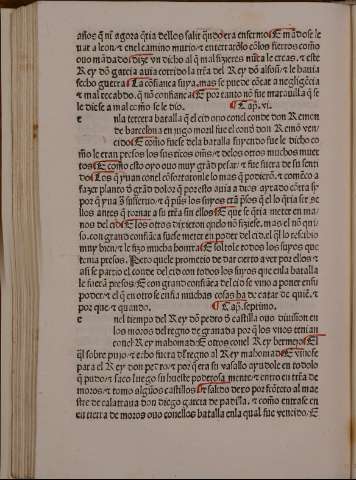 años q̃ nũ agora q̃ria dellos salir q̃ndo era enfermo E mãdose le
uar a leon ⁊ en el camino murio ⁊ enterrarõlo cõ los fierros como
ouo mãdado dize vn dicho al q̃ mal fizieres nũca le creas ⁊ este
Rey dõ garcia auia corrido la tr̃a del Rey dõ alfoñ ⁊ le hauia
fecho guerra La cõfiança suya mas se puede cõtar a negligẽcia
⁊ mal recabdo q̃ nõ confiança E por tanto nõ fue marauilla q̃ se
le diese a mal como se le dio. Cap̃. vi.
e nla tercera batalla q̃ el cid ouo con el conde don Remon
de barcelona en vn gomoril fue el cond don Remõ ven
cido E como fuese dela batalla fuyendo fue le dicho co
mo le eran presos los sus ricos om̃s ⁊ delos otros muchos muer
tos E como esto oyo ouo muy grãd pesar ⁊ fue fuera de su senti
do Los q̃ yuan con el cõfortarõ le lo mas q̃ podierõ ⁊ comẽço a
fazer planto
llos antes q̃ tornar a su tr̃a sin ellos E que se q̃ria meter en ma
nos del cid E los otros dixieron que lo nõ fiziese mas el nõ qui
so con grand confiãça fuese meter en poder del cid el q̃l lo rescibio
muy bien ⁊ le fizo mucha honrra E soltole todos los suyos que
tenia presos. Pero que le prometio de dar cierto aver por ellos ⁊
asi se partio el conde del cid con todos los suyos que en la batalla
le fuerõ presos E con grand confiãça del cid se vino a poner en su
poder ⁊ el q̃ en otro se enfia muchas cosas ha de catar de quiẽ ⁊
por que ⁊ quando. Cap̃. septimo.
e nel tiempo del Rey dõ pedro õ castilla ouo diuision en
los moros del regno de granada por q̃ los vnos tenian
con el Rey mahomad E otros con el Rey bermejo El
q̃l sobre pujo ⁊ echo fuera del regno al Rey mahomad E vinose
para el Rey don pedro ⁊ por q̃ era su vasallo ayudole en todo lo
q̃ pudo ⁊ saco luego su hueste poderosa mente ⁊ entro en tr̃a de
moros ⁊ tomo algũos castillos E salido dexo por frõtero al mae
stre de calatraua don diego garcia de padilla ⁊ como entrase en
en tierra de moros ouo con ellos batalla en la qual fue vencido E